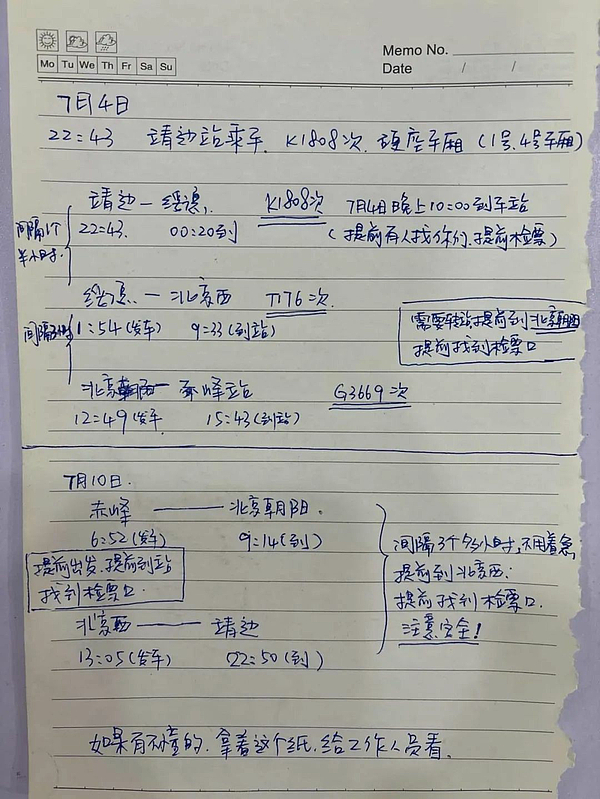 Memo No.
Mo Tu We Th Fr Sa Su
Date / /
7月4日
22:43 靖边站乘车. K1808次. 硬座车厢 (1号、4号车厢)
靖边—绥德. K1808次 7月4日晚上10:00到车站
间隔1个半小时
22:43. 00:20到 (提前有人找你们,提前检票)
绥德—北京西 T176次.
间隔3小时
1:54(发车) 9:33(到站)
需要转站,提前到北京朝阳
提前找到检票口
北京朝阳—赤峰站 G3669次
12:49发车 15:43(到站)
7月10日.
赤峰——北京朝阳.
6:52(发车) 9:14(到)
间隔3个多小时,不用着急,
提前到北京西.
提前找到检票口.
注意安全!
提前出发.提前到站
找到检票口.
北京西——靖边
13:05(发车) 22:50(到)
如果有不懂的.拿着这个纸.给工作人员看.